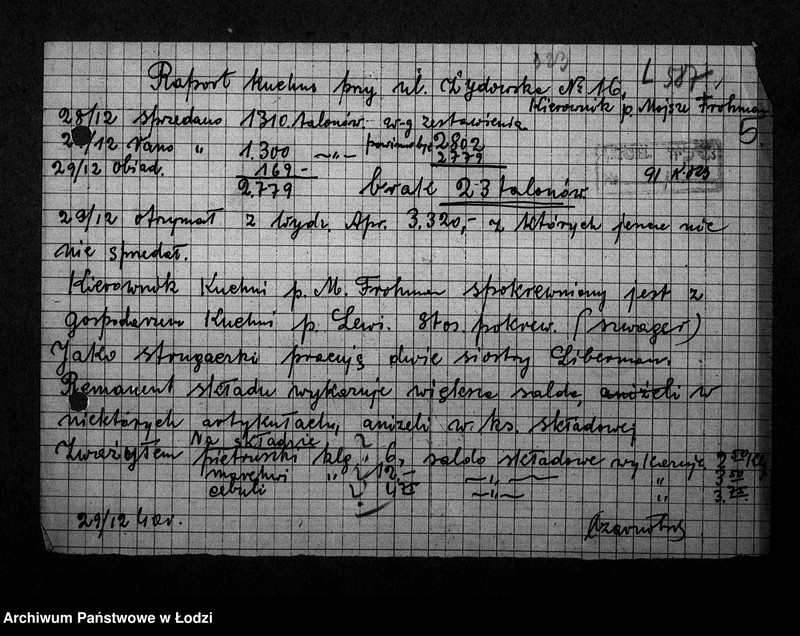 Raport kuchni przy ul. Żydowska № 16,
L 587
Kierownik p. Mojsze Frohman
5.
28/12 sprzedano 1310 talonów w-g zestawienia
29/12 rano " 1.300 —"— powinno być 2802
2779
29/12 obiad. 169 -
2.779 brak 23 talonów.
29/12 otrzymał z Wydz. Apr. 3.320,- z których jeszcze nic
nie sprzedał.
Kierownik Kuchni p. M. Frohman spokrewniony jest z
gospodarzem Kuchni p. Lewi. Stos. pokrew. (szwagier)
Jako strugaczki pracują dwie siostry Liberman.
Remanent składu wykazuje większe saldo, aniżeli w
niektórych artykułach, aniżeli w ks. składowej
Na składzie
Zważyłem pietruszki klg. 6, saldo składowe wykazuje 2 50 Kg
marchwi " 12.- —"— " 3 50
cebuli 4 —"— " 3.
29/12 40r.
Archiwum Państwowe w Łodzi